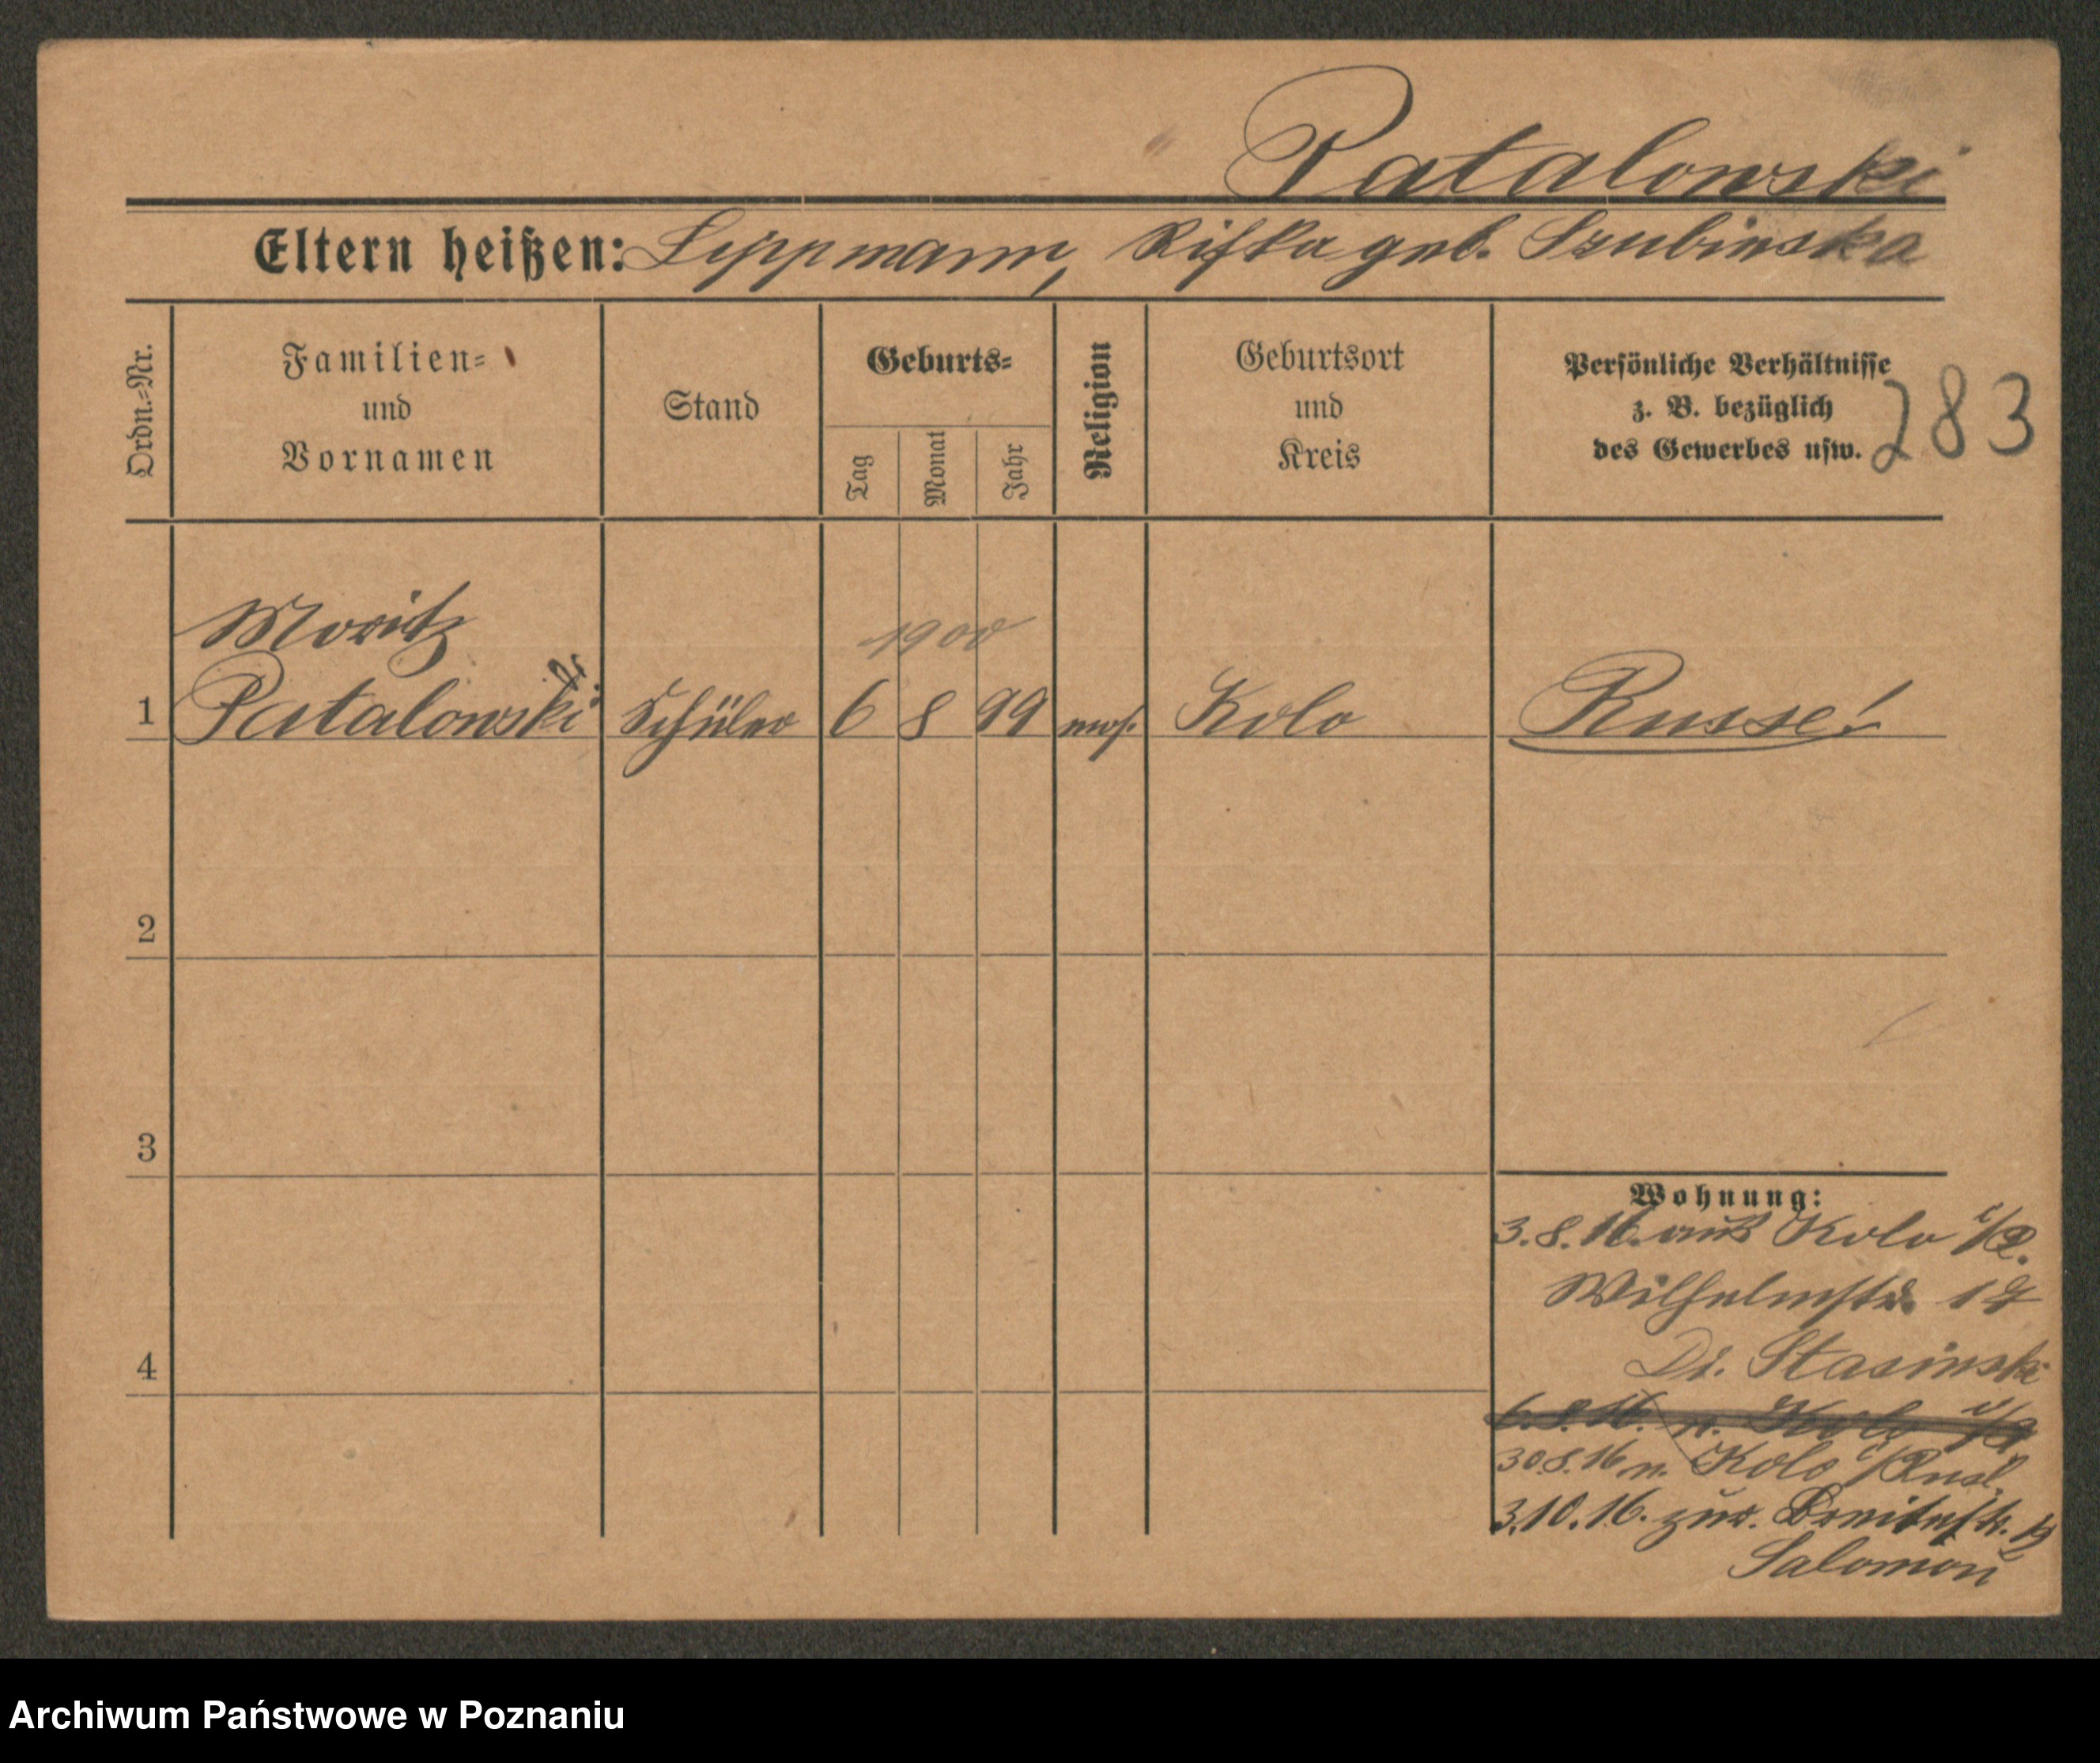 Patalowski
Eltern heißen: Lippmann, Rifka geb. Szubinska
Ordn.-Nr.
Familien-
und
Vornamen
Stand
Geburts-
Tag
Monat
Jahr
Religion
Geburtsort
und
Kreis
Persönliche Verhältnisse
z. B. bezüglich
des Gewerbes usw.
283
Moritz
1900
1 Patalowski Schüler 6 8 99 mos. Kolo Russe!
2
3
4
Wohnung:
3.8.16. aus Kolo i/R.
Wilhelmstr. 17
Dr. Stasinski
6.8.16. n. Kolo i/R.
30.8.16 n. Kolo i/Rusl.
3.10.16. zur. Breitestr.
Salomon
Archiwum Państwowe w Poznaniu